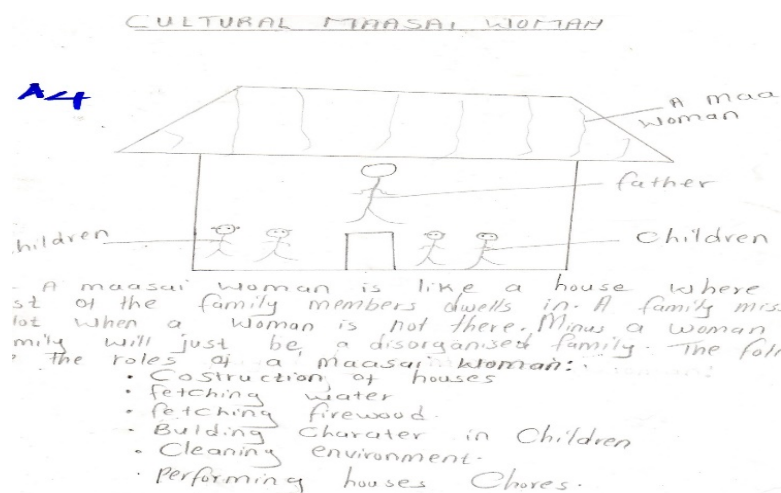 CULTURAL MAASAI WOMAN
A4
A maa
woman
father
hildren
Children
- A maasai woman is like a house where
st of the family members dwells in. A family mis
lot when a woman is not there. Minus a woman
mily will just be a disorganised family. The foll
the roles of a maasai woman:
• Costruction of houses
• fetching water
• fetching firewood.
• Bulding Charater in Children
• Cleaning environment.
• Performing houses Chores.